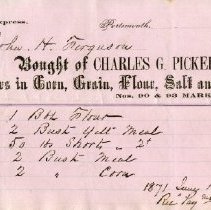 xpress.
Portsmouth,
John H. Ferguson
Bought of CHARLES G. PICKER
rs in Corn, Grain, Flour, Salt an
Nos. 90 & 93 MARK
1 Bbl Flour
2 Bush Yell Meal
50 lbs Shorts " 2
2 Bush Meal
2 " Corn
1871